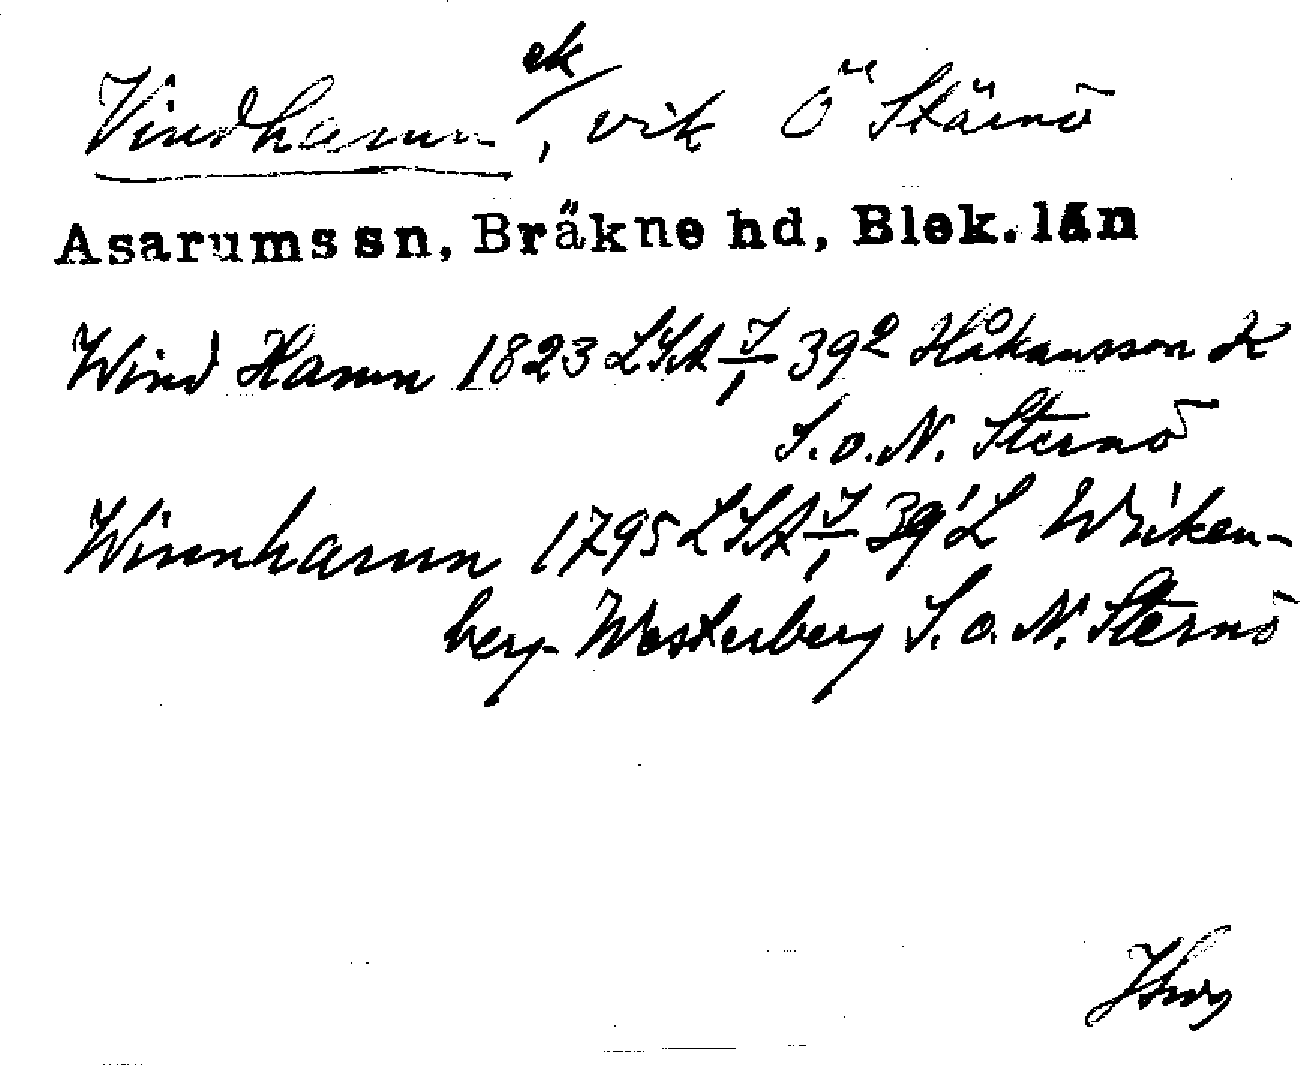 ek
Vindhamn, vik Ö Stärnö
Asarums sn, Bräkne hd, Blek. län
Wind Hamn 1823 LSA I/1 39² Håkansson K
S. o. N. Sternö
Winnhamn 1795 LSA I/1 39¹ L Wriken-
berg-Westerberg S. o. N. Sternö